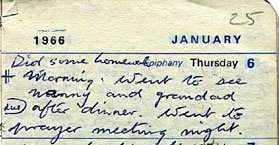 25
1966 JANUARY
Did some homework Epiphany Thursday 6
+ Morning. Went to see
nanny and grandad
after dinner. Went to
prayer meeting night.